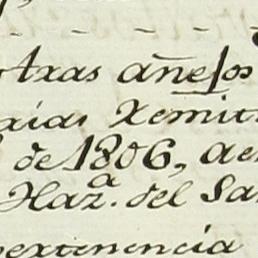 otras añejos
arias remiti
de 1806, de
Haz.ª del Sa
pertenencia